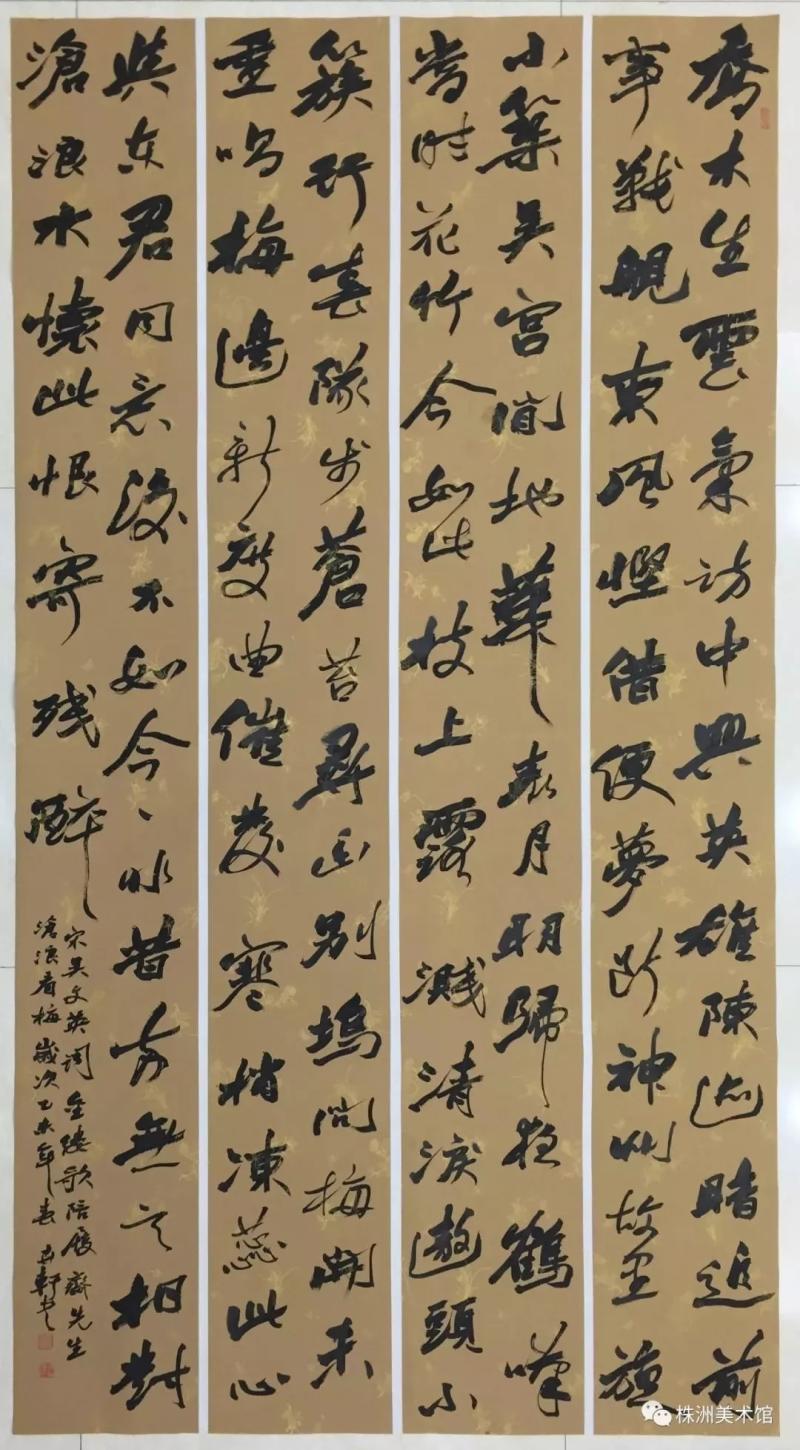 喬木生雲氣訪中興英雄陳迹暗追前
事戰艦東風慳借便夢斷神州故里旋
小築吳宮閒地華表月明歸夜鶴嘆
當時花竹今如此枝上露濺清淚遨頭小
簇行春隊步蒼苔尋幽別塢問梅開未
重唱梅邊新度曲催發寒梢凍蕊此心
與東君同意後不如今々非昔兩無言相對
滄浪水懷此恨寄残醉
宋吳文英詞金縷歌陪履齋先生
滄浪看梅歲次乙未年春 軒書
株洲美术馆